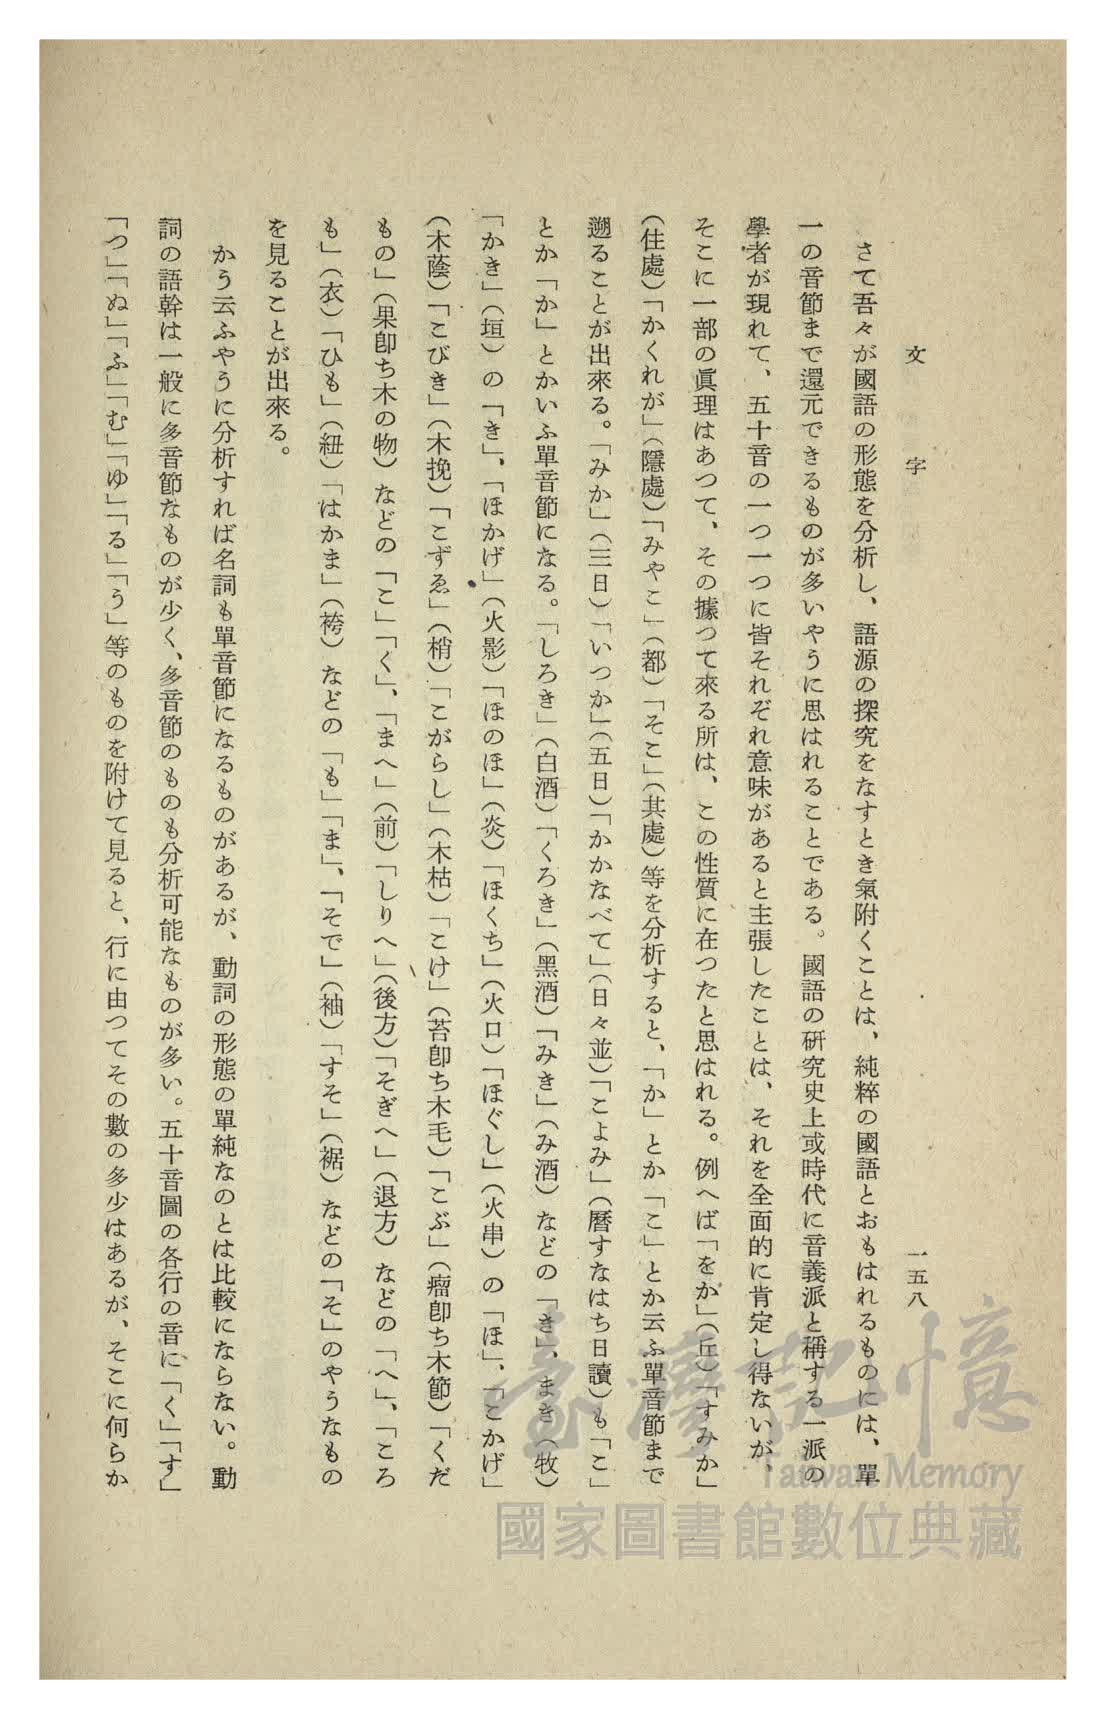 文字
一五八
さて吾々が國語の形態を分析し、語源の探究をなすとき氣附くことは、純粹の國語とおもはれるものには、單
一の音節まで還元できるものが多いやうに思はれることである。國語の硏究史上或時代に音義派と稱する一派の
學者が現れて、五十音の一つ一つに皆それぞれ意味があると主張したことは、それを全面的に肯定し得ないが、
そこに一部の眞理はあつて、その據つて來る所は、この性質に在つたと思はれる。例へば「をか」(丘)「すみか」
(住處)「かくれが」(隱處)「みやこ」(都)「そこ」(其處)等を分析すると、「か」とか「こ」とか云ふ單音節まで
遡ることが出來る。「みか」(三日)「いつか」(五日)「かかなべて」(日々並)「こよみ」(曆すなはち日讀)も「こ」
とか「か」とかいふ單音節になる。「しろき」(白酒)「くろき」(黑酒)「みき」(み酒)などの「き」、まき(牧)
「かき」(垣)の「き」、「ほかげ」(火影)「ほのほ」(炎)「ほくち」(火口)「ほぐし」(火串)の「ほ」、「こかげ」
(木蔭)「こびき」(木挽)「こずゑ」(梢)「こがらし」(木枯)「こけ」(苔卽ち木毛)「こぶ」(瘤卽ち木節)「くだ
もの」(果卽ち木の物)などの「こ」「く」、「まへ」(前)「しりへ」(後方)「そぎへ」(退方)などの「へ」、「ころ
も」(衣)「ひも」(紐)「はかま」(袴)などの「も」「ま」、「そで」(袖)「すそ」(裾)などの「そ」のやうなもの
を見ることが出來る。
かう云ふやうに分析すれば名詞も單音節になるものがあるが、動詞の形態の單純なのとは比較にならない。動
詞の語幹は一般に多音節なものが少く、多音節のものも分析可能なものが多い。五十音圖の各行の音に「く」「す」
「つ」「ぬ」「ふ」「む」「ゆ」「る」「う」等のものを附けて見ると、行に由つてその數の多少はあるが、そこに何らか
臺灣記憶
Taiwan Memory
國家圖書館數位典藏